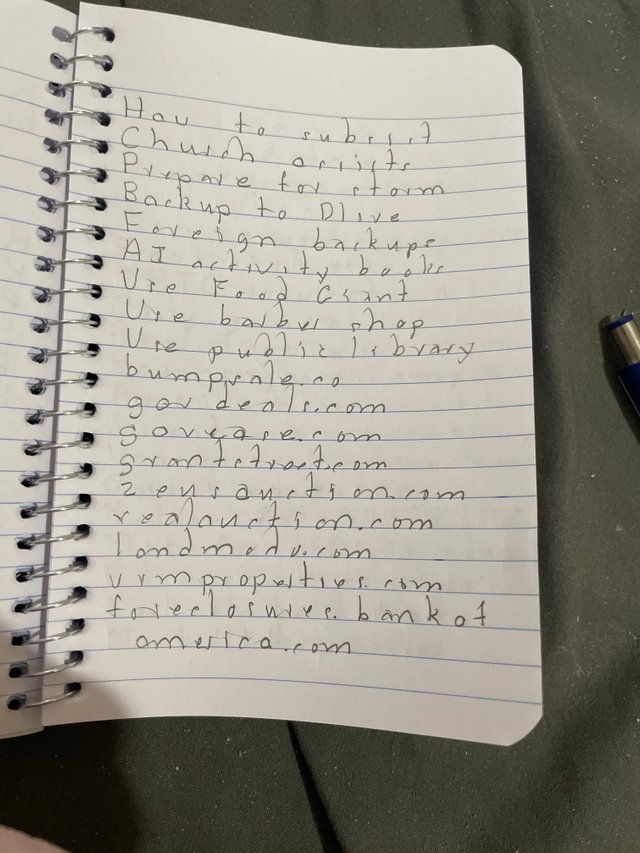 How to subsist
Church assists
Prepare for storm
Backup to Dlive
Foreign backups
AI activity books
Use Food Giant
Use barber shop
Use public library
bumpsale.co
gov deals.com
govease.com
grantstreet.com
zeusauction.com
realauction.com
landmodo.com
vrmproperties.com
foreclosures.bank of
america.com